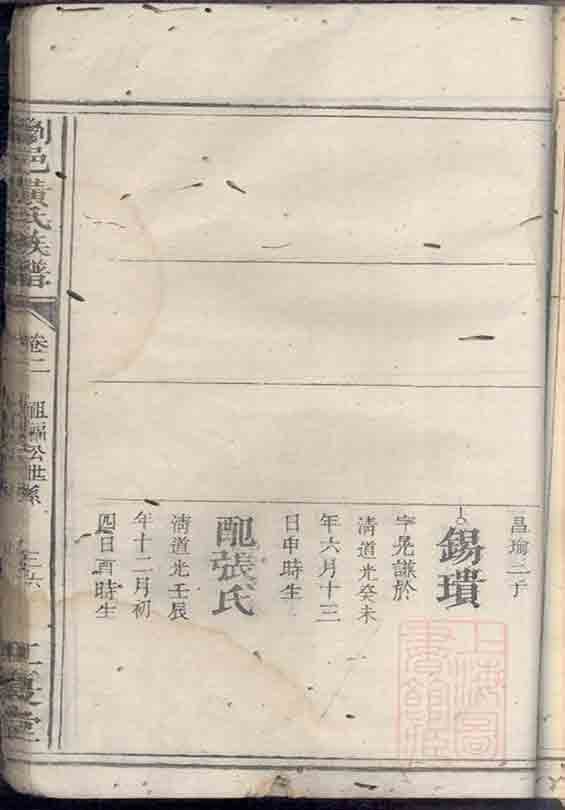 昌瑜二子
錫璝
字晃謙於
清道光癸未
年六月十三
日申時生
配張氏
清道光壬辰
年十二月初
四日酉時生
瀏邑黃氏族譜
卷二
祖福公世系
上海圖書館藏